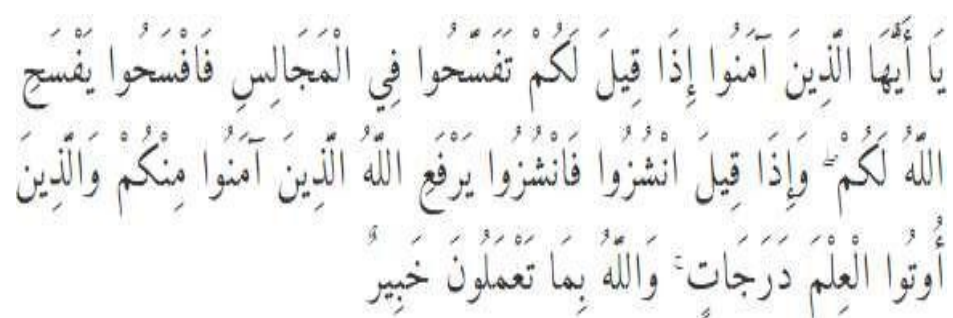 يَا أَيُّهَا الَّذِينَ آمَنُوا إِذَا قِيلَ لَكُمْ تَفَسَّحُوا فِي الْمَجَالِسِ فَافْسَحُوا يَفْسَحِ
اللَّهُ لَكُمْ ۖ وَإِذَا قِيلَ انْشُزُوا فَانْشُزُوا يَرْفَعِ اللَّهُ الَّذِينَ آمَنُوا مِنْكُمْ وَالَّذِينَ
أُوتُوا الْعِلْمَ دَرَجَاتٍ ۚ وَاللَّهُ بِمَا تَعْمَلُونَ خَبِيرٌ